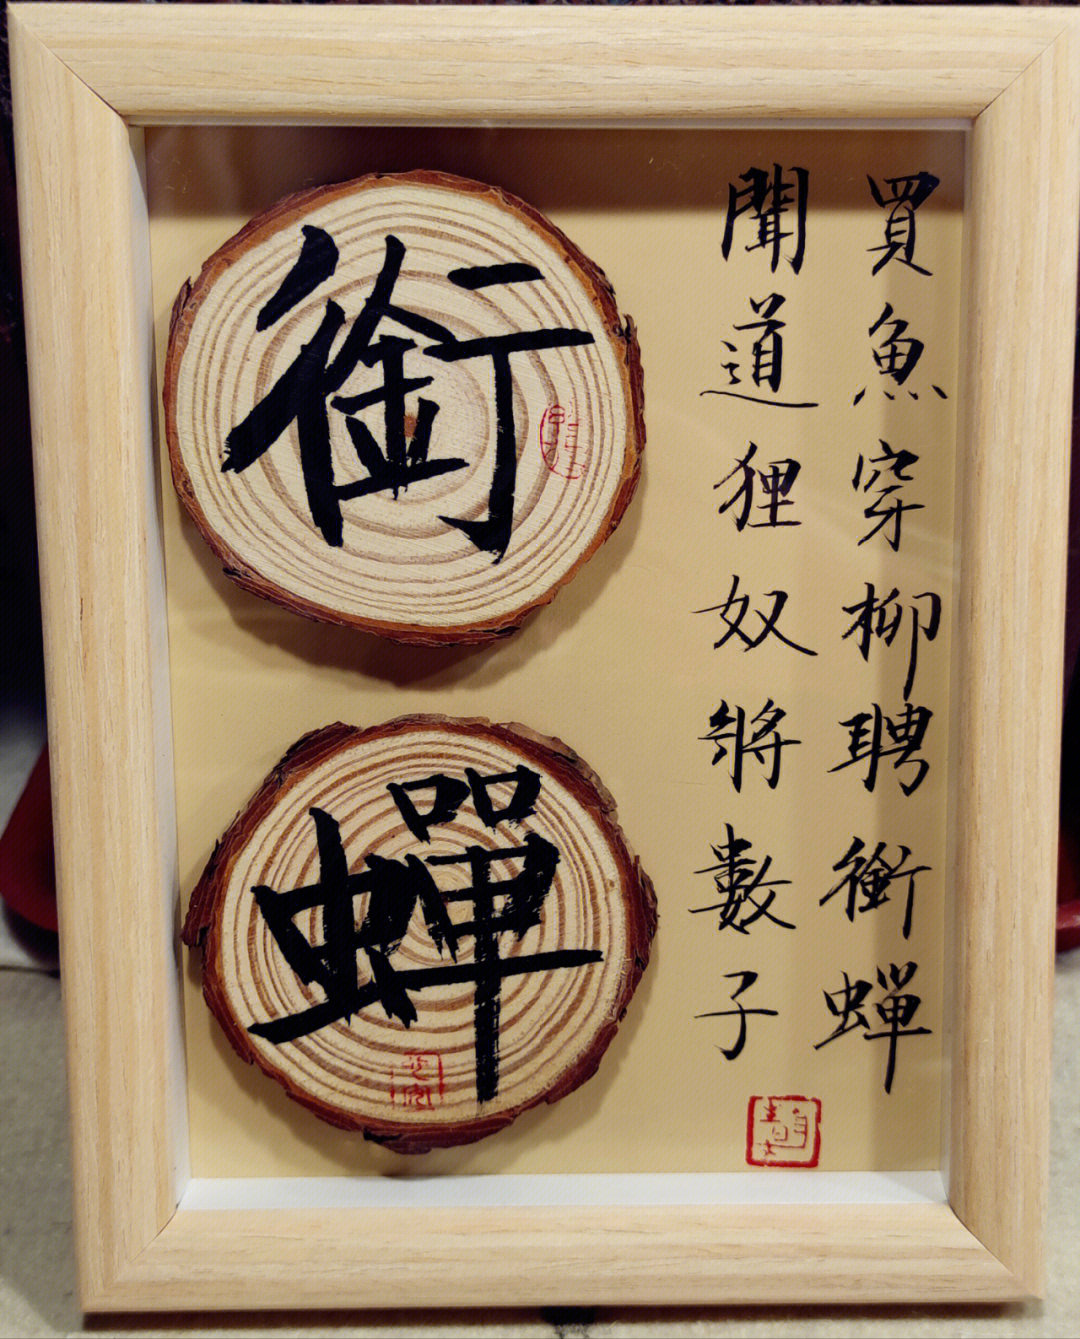 買魚穿柳聘銜蟬
聞道狸奴將數子
銜
蟬